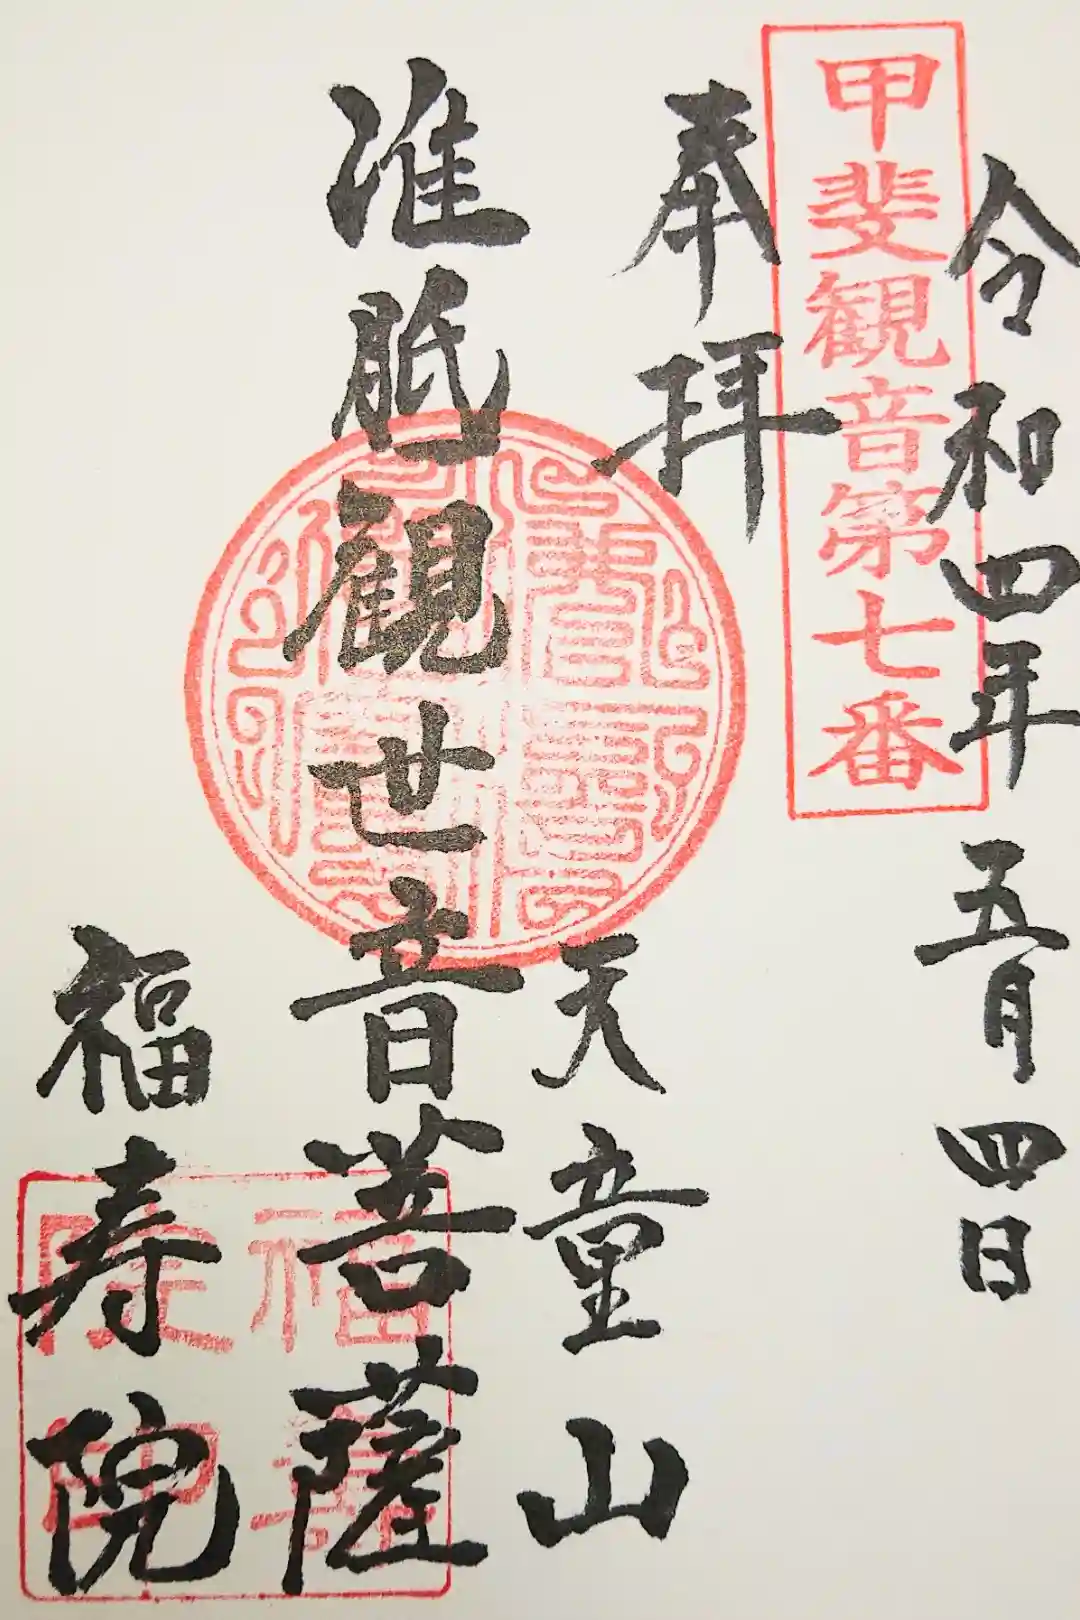 令和四年五月四日
甲斐観音第七番
奉拝
天童山
准胝観世音菩薩
福寿院